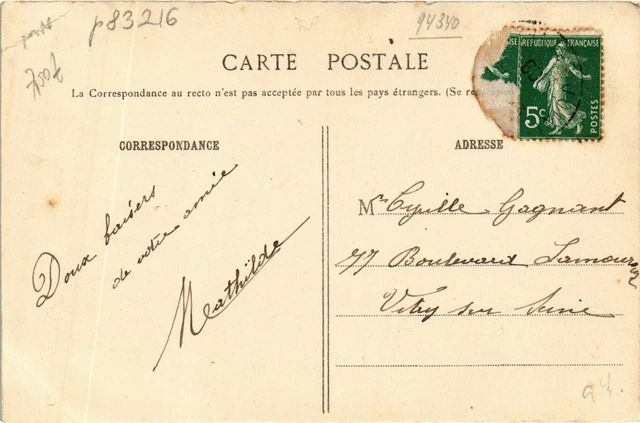 p83216
94340
CARTE POSTALE
La Correspondance au recto n'est pas acceptée par tous les pays étrangers. (Se
RÉPUBLIQUE FRANÇAISE
5c
POSTES
CORRESPONDANCE
ADRESSE
Doux baisers
de votre amie
Mathilde
Mr Cyille Gagnant
77 Boulevard Lamouroux
Vitry sur Seine